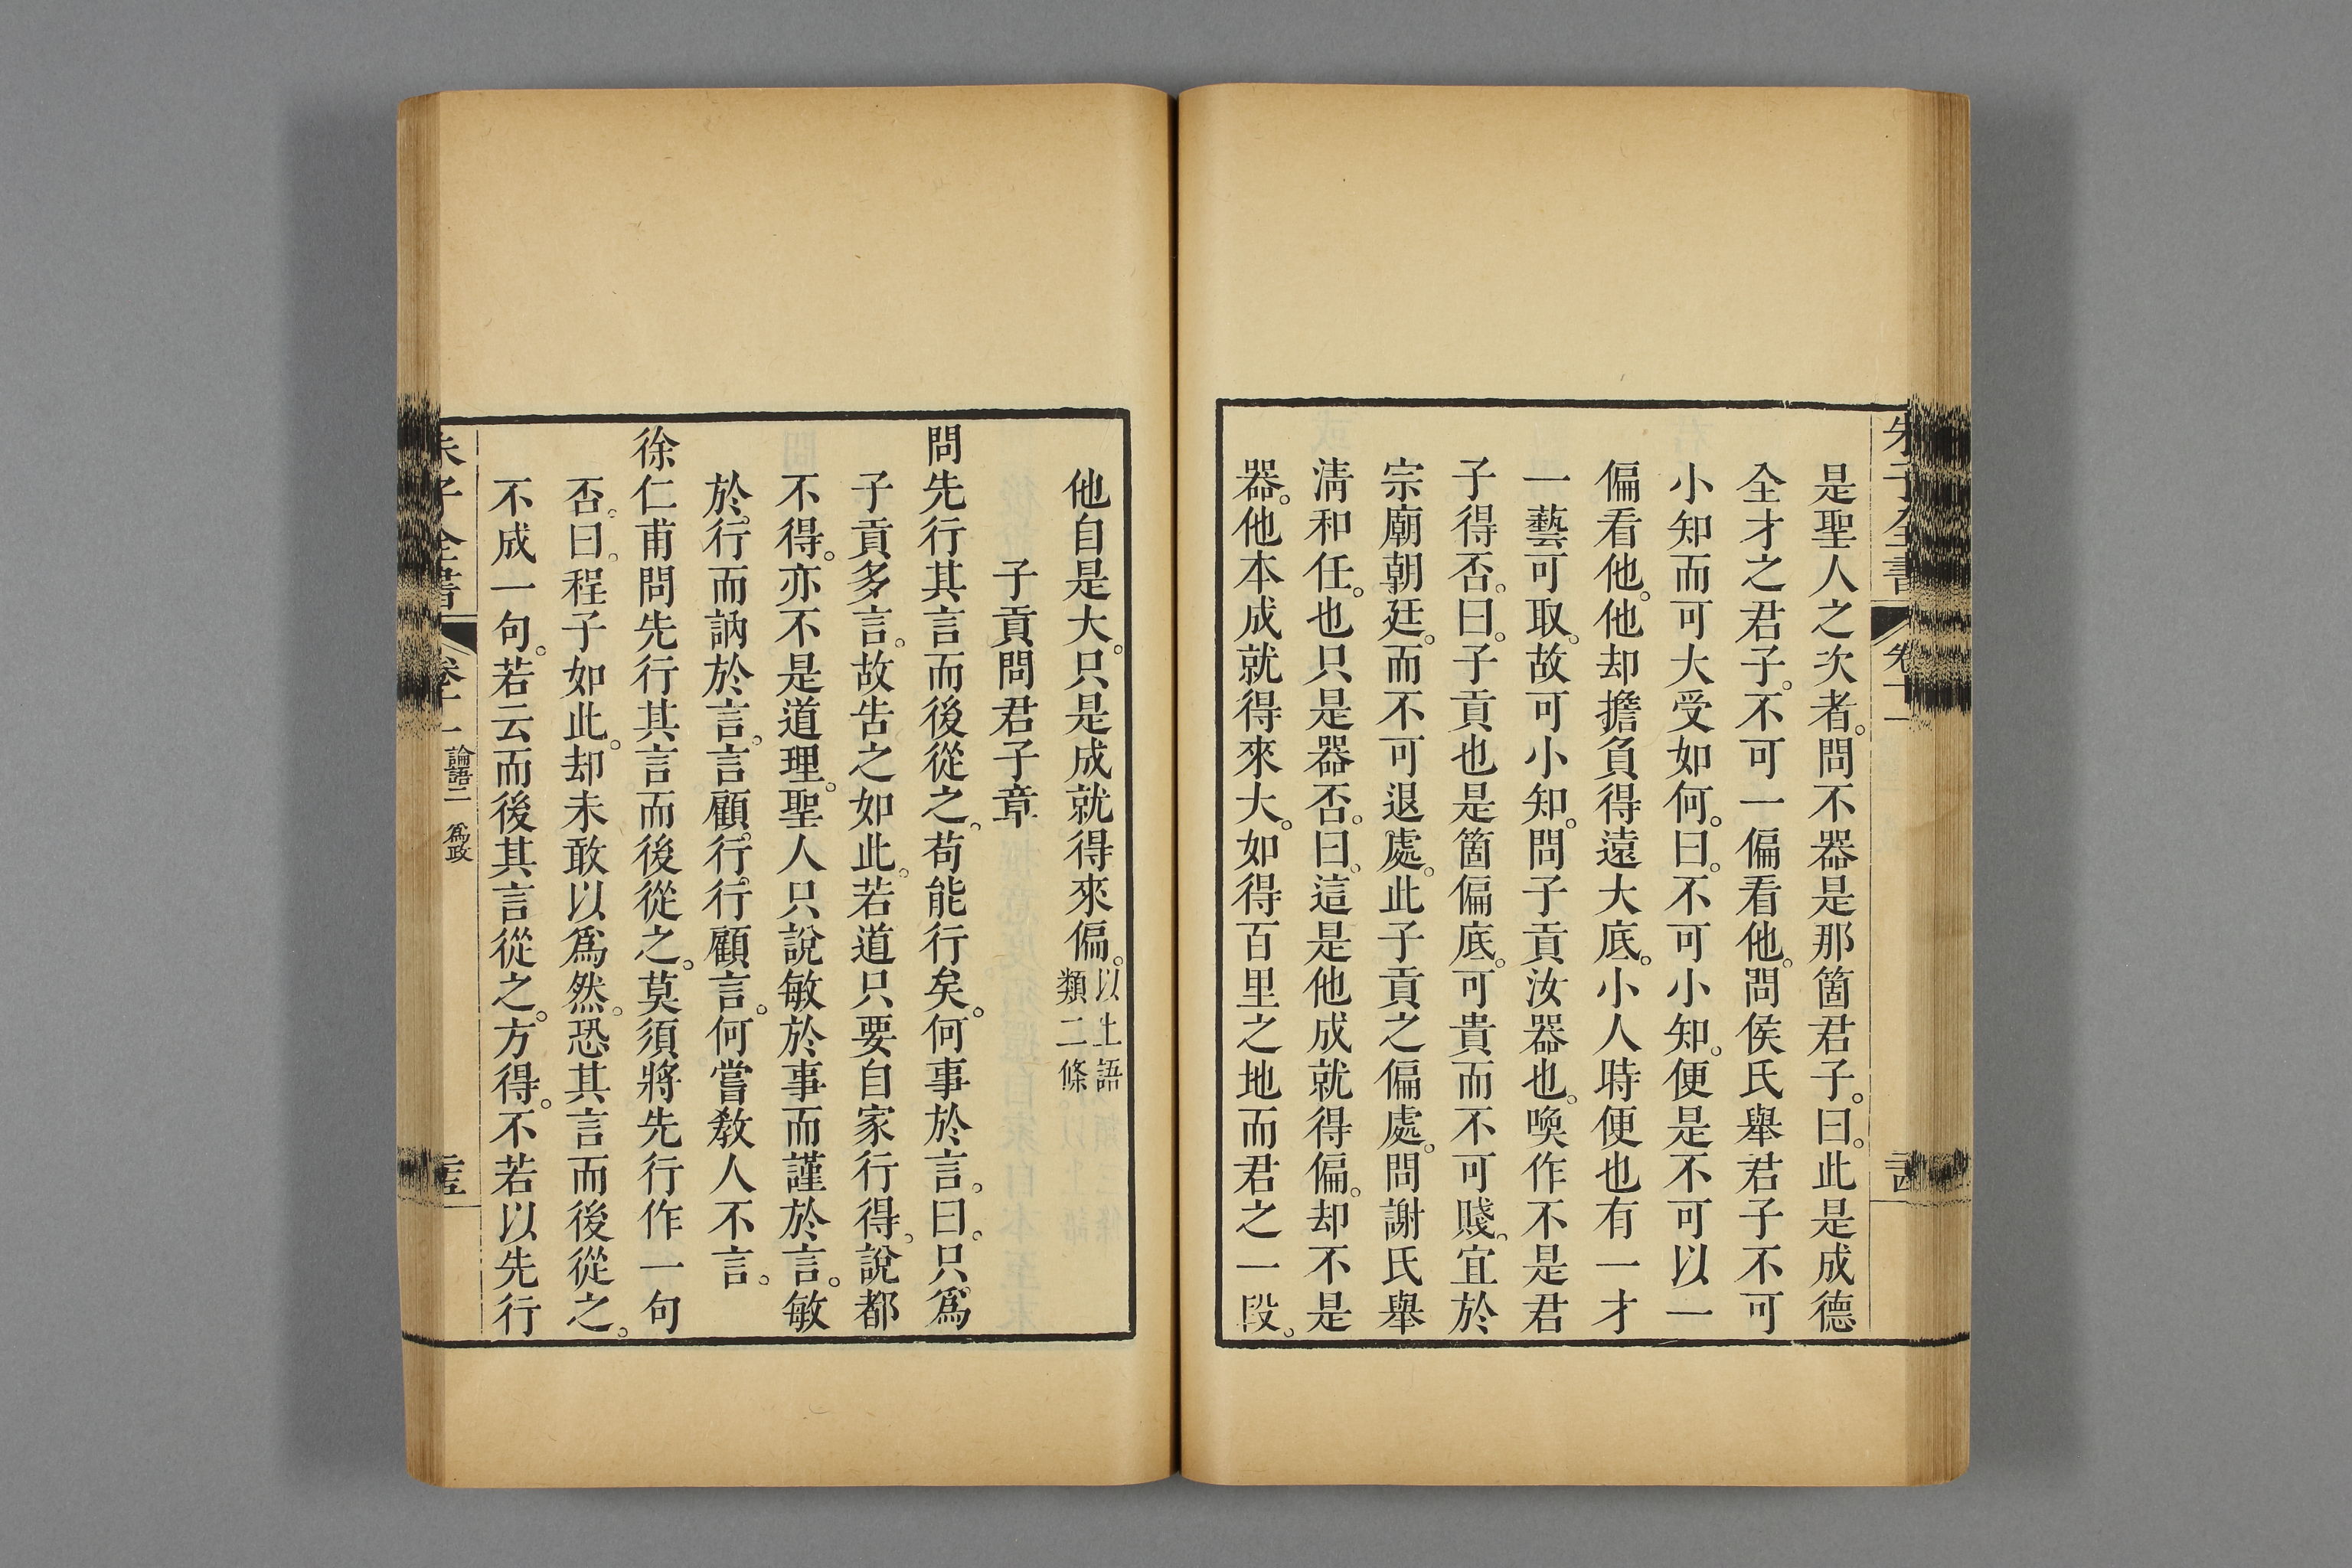 朱子全書 卷十一
是聖人之次者。問不器是那箇君子。曰。此是成德
全才之君子。不可一偏看他。問侯氏舉君子不可
小知而可大受如何。曰。不可小知。便是不可以一
偏看他。他却擔負得遠大底。小人時便也有一才
一藝可取。故可小知。問子貢汝器也。喚作不是君
子得否。曰。子貢也是箇偏底。可貴而不可賤。宜於
宗廟朝廷。而不可退處。此子貢之偏處。問謝氏舉
淸和任。也只是器否。曰。這是他成就得偏。却不是
器。他本成就得來大。如得百里之地而君之一段。
他自是大。只是成就得來偏。以上語
類二條
子貢問君子章
問先行其言而後從之。苟能行矣。何事於言。曰。只爲
子貢多言。故告之如此。若道只要自家行得。說都
不得。亦不是道理。聖人只說敏於事而謹於言。敏
於行而訥於言。言顧行。行顧言。何嘗敎人不言。
徐仁甫問先行其言而後從之。莫須將先行作一句
否。曰。程子如此。却未敢以爲然。恐其言而後從之。
不成一句。若云而後其言從之。方得。不若以先行
朱子全書 卷十一 論語二 爲政